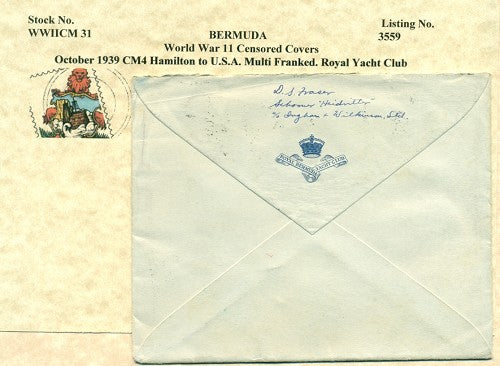 Stock No.
WWIICM 31
BERMUDA
Listing No.
3559
World War 11 Censored Covers
October 1939 CM4 Hamilton to U.S.A. Multi Franked. Royal Yacht Club
D. S. Fraser
Schooner "
c/o Ingham & Wilkinson, Ltd.
ROYAL BERMUDA YACHT CLUB